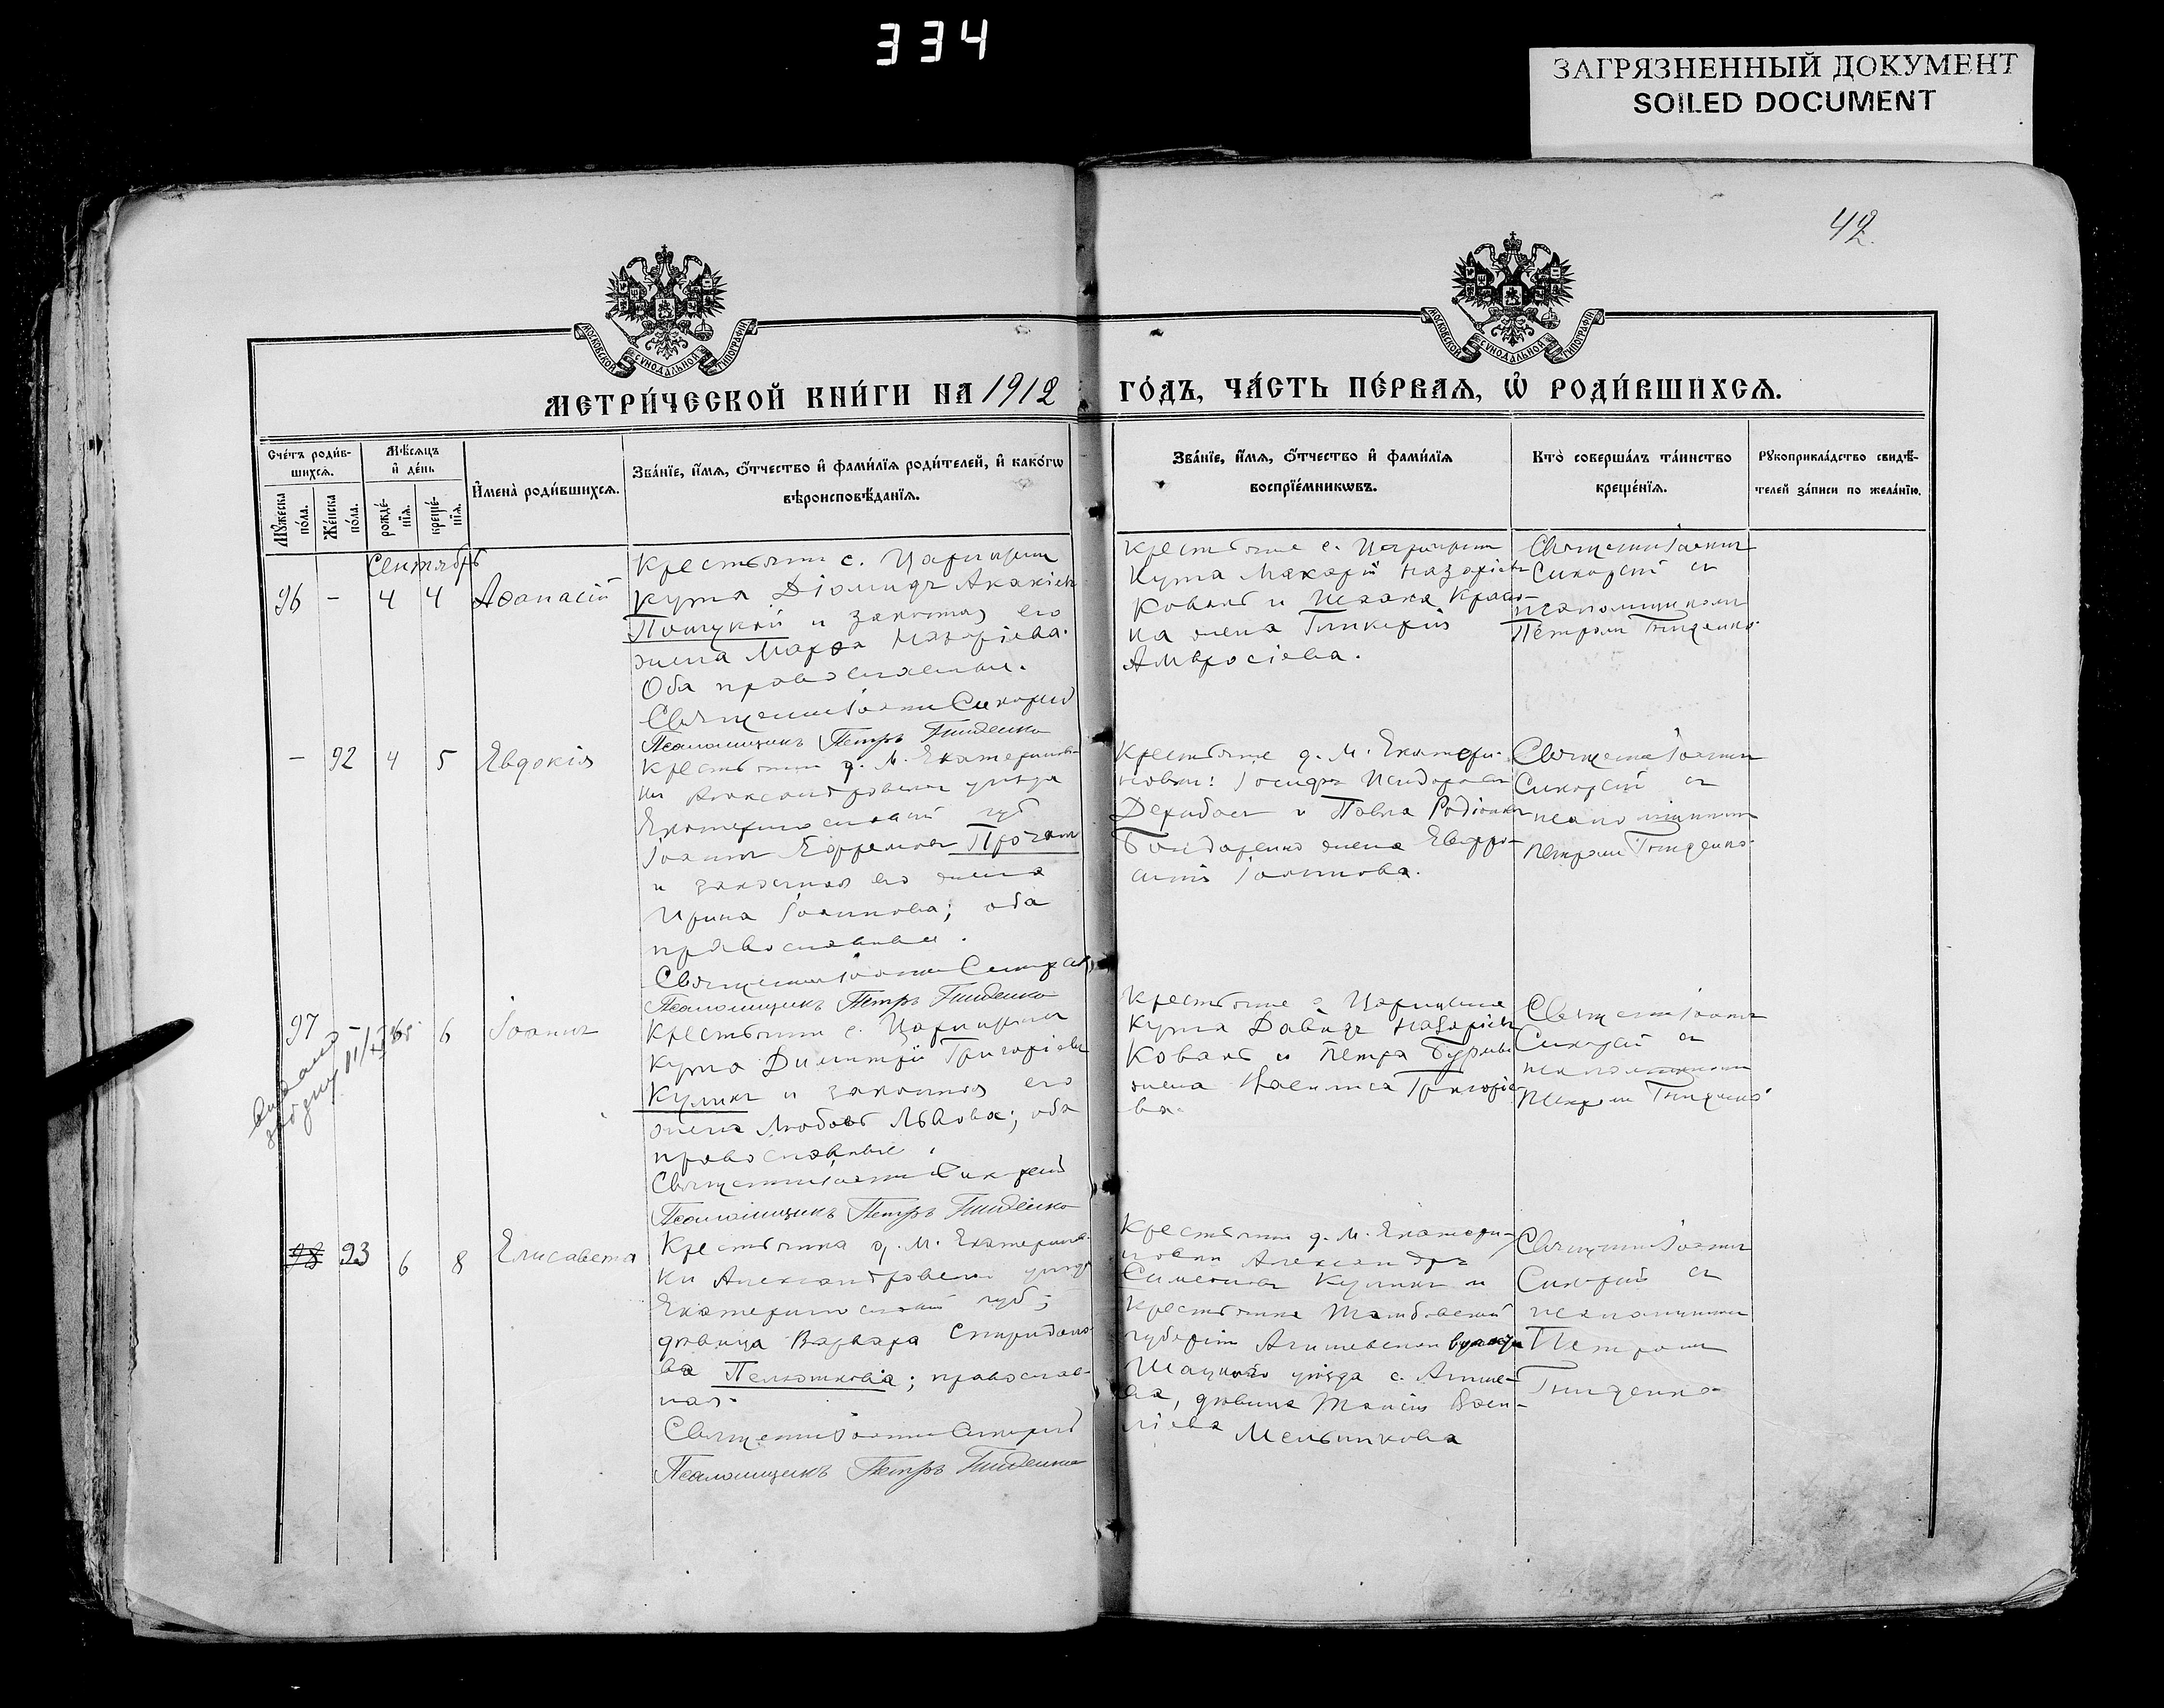 334
ЗАГРЯЗНЕННЫЙ ДОКУМЕНТ
SOILED DOCUMENT
42.
МОСКОВСКОЙ СѴНОДАЛЬНОЙ ТИПОГРАФІИ
МОСКОВСКОЙ СѴНОДАЛЬНОЙ ТИПОГРАФІИ
МЕТРИ́ЧЕСКОЙ КНИ́ГИ НА 1912 ГО́ДЪ, ЧА́СТЬ ПЕ́РВАѦ, Ѽ РОДИ́ВШИХСѦ.
Сче́тъ роди́в-
шихсѧ.
Мѣ́сѧцъ
и҆ де́нь
Мꙋ́жеска
по́ла.
Же́нска
по́ла.
рожде́-
нїѧ.
креще́-
нїѧ.
И҆мена̀ роди́вшихсѧ.
Зва́нїе, и҆́мѧ, ѻ҆́тчество и҆ фами́лїѧ роди́телей, и҆ како́гѡ
вѣроисповѣ́данїѧ.
Зва́нїе, и҆́мѧ, ѻ҆́тчество и҆ фами́лїѧ
воспрїе́мникѡвъ.
Кто̀ соверша́лъ та́инство
креще́нїѧ.
Рꙋкоприкла́дство свидѣ́-
телей за́писи по жела́нїю.
Сентябрь
96 - 4 4 Аѳанасій
Крестьянин с. Царицын
Кута Діомидъ Акакіевъ
Поцукой и законная его
жена Марѳа Назаріева.
Оба православные.
Священник Іоанн Сикорский
Псаломщикъ Петръ Гниденко
Крестьяне с. Царицын
Кута Макарій Назаріевъ
Коваль и Исаака
на жена Гликерія
Амвросіева.
Священник Іоаннъ
Сикорскій съ
псаломщиком
Петромъ Гниденко.
- 92 4 5 Евдокія
Крестьянин д. М. Екатеринов-
ки Александровского уѣзда
Екатеринославской губ
Іоаннъ Ефремовъ
и законная его жена
Ирина Іоаннова; оба
православные.
Священник Іоанн Сикорский
Псаломщикъ Петръ Гниденко
Крестьяне д. М. Екатери-
новки: Іосифъ Исидоровъ
Дерибасъ и Павла Родіонова
Бондаренко жена Евфро-
синія Іоаннова.
Священник Іоаннъ
Сикорскій съ
псаломщиком
Петромъ Гниденко.
97 - 6 6 Іоаннъ
Крестьянин с. Царицын
Кута Димитрій Григоріевъ
Куликъ и законная его
жена Любовь Львова; оба
православные.
Священник Іоанн Сикорский
Псаломщикъ Петръ Гниденко
Крестьяне с Царицына
Кута Давидъ Назаріевъ
Коваль и Петра
жена Василиса Григоріе-
ва.
Священник Іоаннъ
Сикорскій съ
псаломщиком
Петромъ Гниденко
98 93 6 8 Елисавета
Крестьянка д. М. Екатеринов-
ки Александровского уѣзда
Екатеринославской губ;
дѣвица Варвара Спиридоно-
ва Пелюткова; православ-
ная.
Священник Іоанн Сикорский
Псаломщикъ Петръ Гниденко
Крестьянин д. М. Екатери-
новки Александръ
Симеоновъ Куликъ и
крестьянка Тамбовской
губерніи
Шацкаго уѣзда с.
дѣвица Васи-
ліева Мельникова
Священник Іоаннъ
Сикорскій съ
псаломщиком
Петромъ
Гниденко